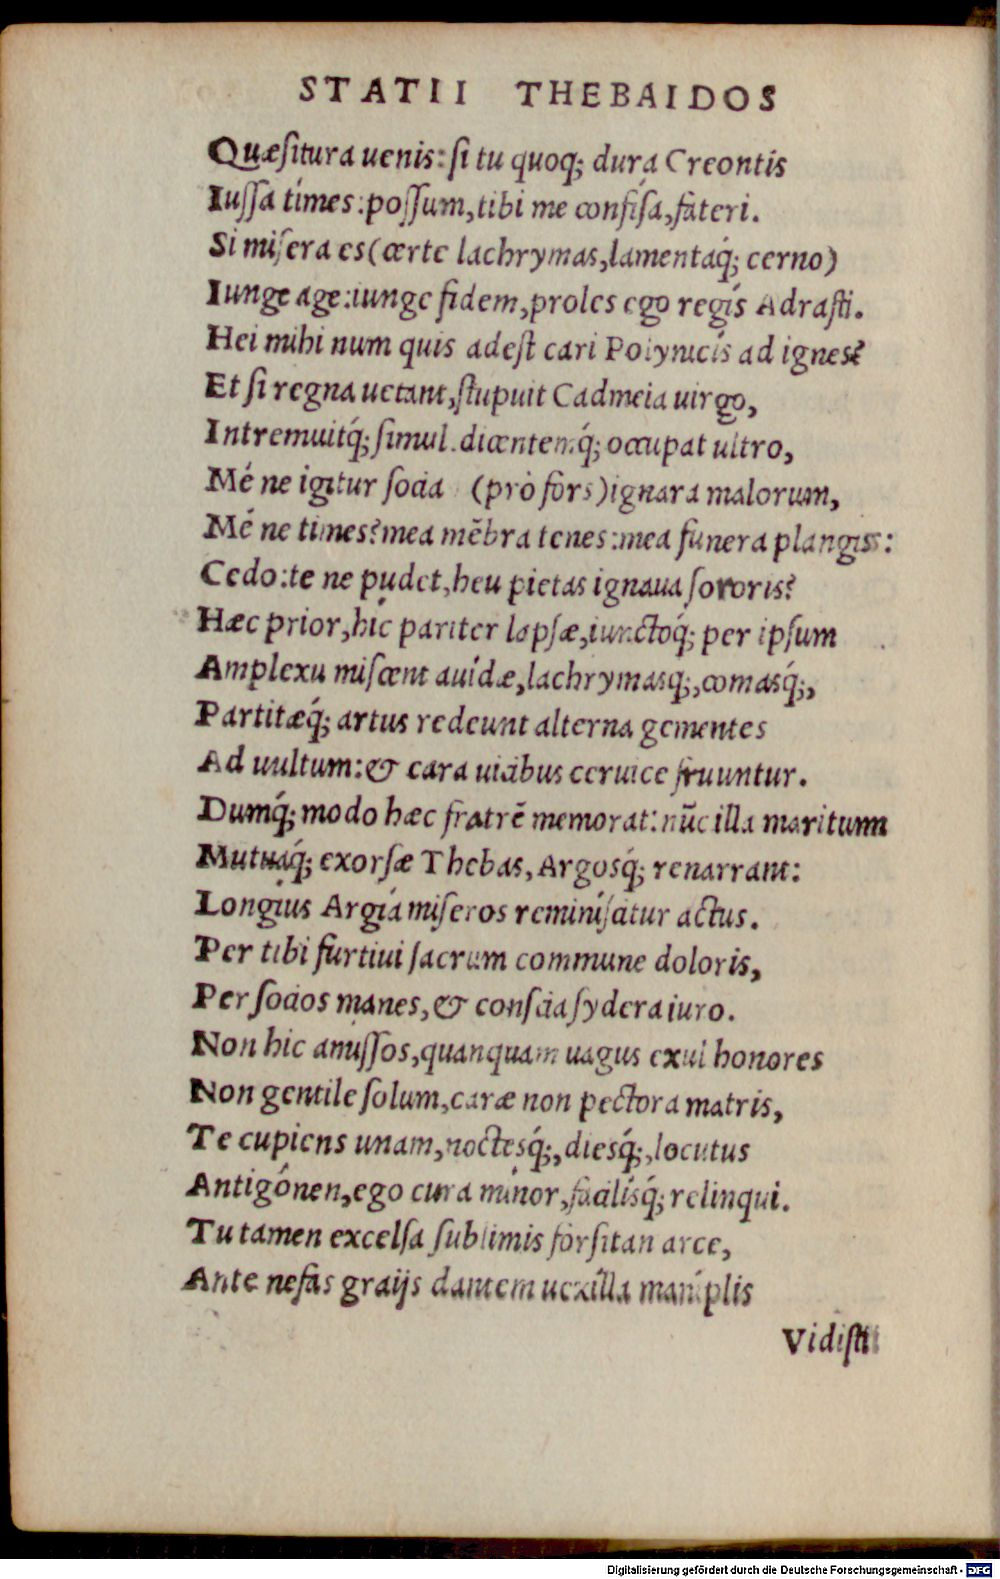 STATII THEBAIDOS
Quæsitura uenis: si tu quoq; dura Creontis
Iussa times: possum, tibi me confisa, fateri.
Si misera es (certe lachrymas, lamentaq́; cerno)
Iunge age: iunge fidem, proles ego regis Adrasti.
Hei mihi num quis adest cari Polynicis ad ignes?
Et si regna uetant, stupuit Cadmeia uirgo,
Intremuitq́; simul. dicentemq́; occupat ultro,
Mé ne igitur socia (prò fors) ignara malorum,
Mé ne times? mea mēbra tenes: mea funera plangis:
Cedo: te ne pudet, heu pietas ignaua sororis?
Hæc prior, hic pariter lapsæ, iunctoq́; per ipsum
Amplexu miscent auidæ, lachrymasq́;, comasq́;,
Partitæq́; artus redeunt alterna gementes
Ad uultum: & cara uicibus ceruice fruuntur.
Dumq́; modo hæc fratrē memorat: nūc illa maritum
Mutuaq́; exorsæ Thebas, Argosq́; renarrant:
Longius Argía miseros reminiscitur actus.
Per tibi furtiui sacrum commune doloris,
Per socios manes, & conscia sydera iuro.
Non hic amissos, quanquam uagus exul honores
Non gentile solum, caræ non pectora matris,
Te cupiens unam, noctesq́;, diesq́;, locutus
Antigónen, ego cura minor, facilisq́; relinqui.
Tu tamen excelsa sublimis forsitan arce,
Ante nefas graijs dantem uexilla maniplis
Vidisti
Digitalisierung gefördert durch die Deutsche Forschungsgemeinschaft - DFG